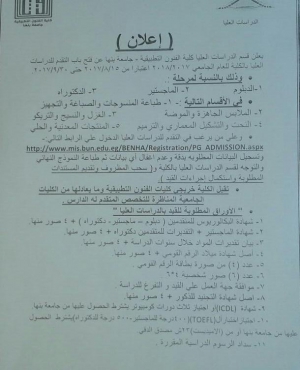 الدراسات العليا
( إعلان )
يعلن قسم الدراسات العليا كلية الفنون التطبيقية - جامعة بنها عن فتح باب التقدم للدراسات
العليا بالكلية للعام الجامعي ٢٠١٨/٢٠١٧ اعتبارا من ٢٠١٧/٨/١٥ حتى ٢٠١٧/٩/٣٠
• وذلك بالنسبة لمرحلة
١-الدبلوم ٢- الماجستير ٣- الدكتوراه
• في الأقسام التالية :- ١- طباعة المنسوجات والصباغة والتجهيز
٢- الملابس الجاهزة والموضة ٣- الغزل والنسيج والتريكو
٤- النحت والتشكيل المعماري والترميم ٥- المنتجات المعدنية والحلي
• وعلى من يرغب في التقدم للدراسات العليا الدخول على الرابط التالي:
http://www.mis.bun.edu.eg/BENHA/Registration/PG_ADMISSION.aspx
وتسجيل البيانات المطلوبة بدقة وعدم اغفال أي بيانات ثم طباعة النموذج النهائي
والتوجه لقسم الدراسات العليا بالكلية و( سحب المظروف وتقديم المستندات
المطلوبة واستكمال إجراءات القيد )
تقبل الكلية خريجي كليات الفنون التطبيقية وما يعادلها من الكليات
الجامعية المناظرة للتخصص المتقدم له الدارس
" الأوراق المطلوبة للقيد بالدراسات العليا "
١- شهادة البكالوريوس للمتقدمين ( دبلوم - ماجستير - دكتوراه ) + ٤ صور منها.
٢- شهادة الماجستير + التقديرات للمتقدمين للدكتوراه + ٤ صور منها.
٣- بيان تقديرات المواد خلال سنوات الدراسة + ٤ صور منها.
٤- أصل شهادة الميلاد + ٤ صور منها.
٥- عدد (٤) من صورة بطاقة الرقم القومي.
٦- عدد (٦) صور شخصية ٤×٦
٧- موافقة جهة العمل على القيد و التفرغ للدراسة.
٨- أصل شهادة التجنيد للذكور + ٤ صور منها.
٩- شهادة (ICDL) أو اجتياز ثلاث دورات كومبيوتر يشترط الحصول عليها من جامعة بنها.
١٠- اجتياز اختبار ال(TOEFL)(٤٠٠ درجة للماجستير-٥٠٠ درجة للدكتوراه)يشترط الحصول
عليها من جامعة بنها أو من (الأميديست)
١١- سداد الرسوم الدراسية المقررة.